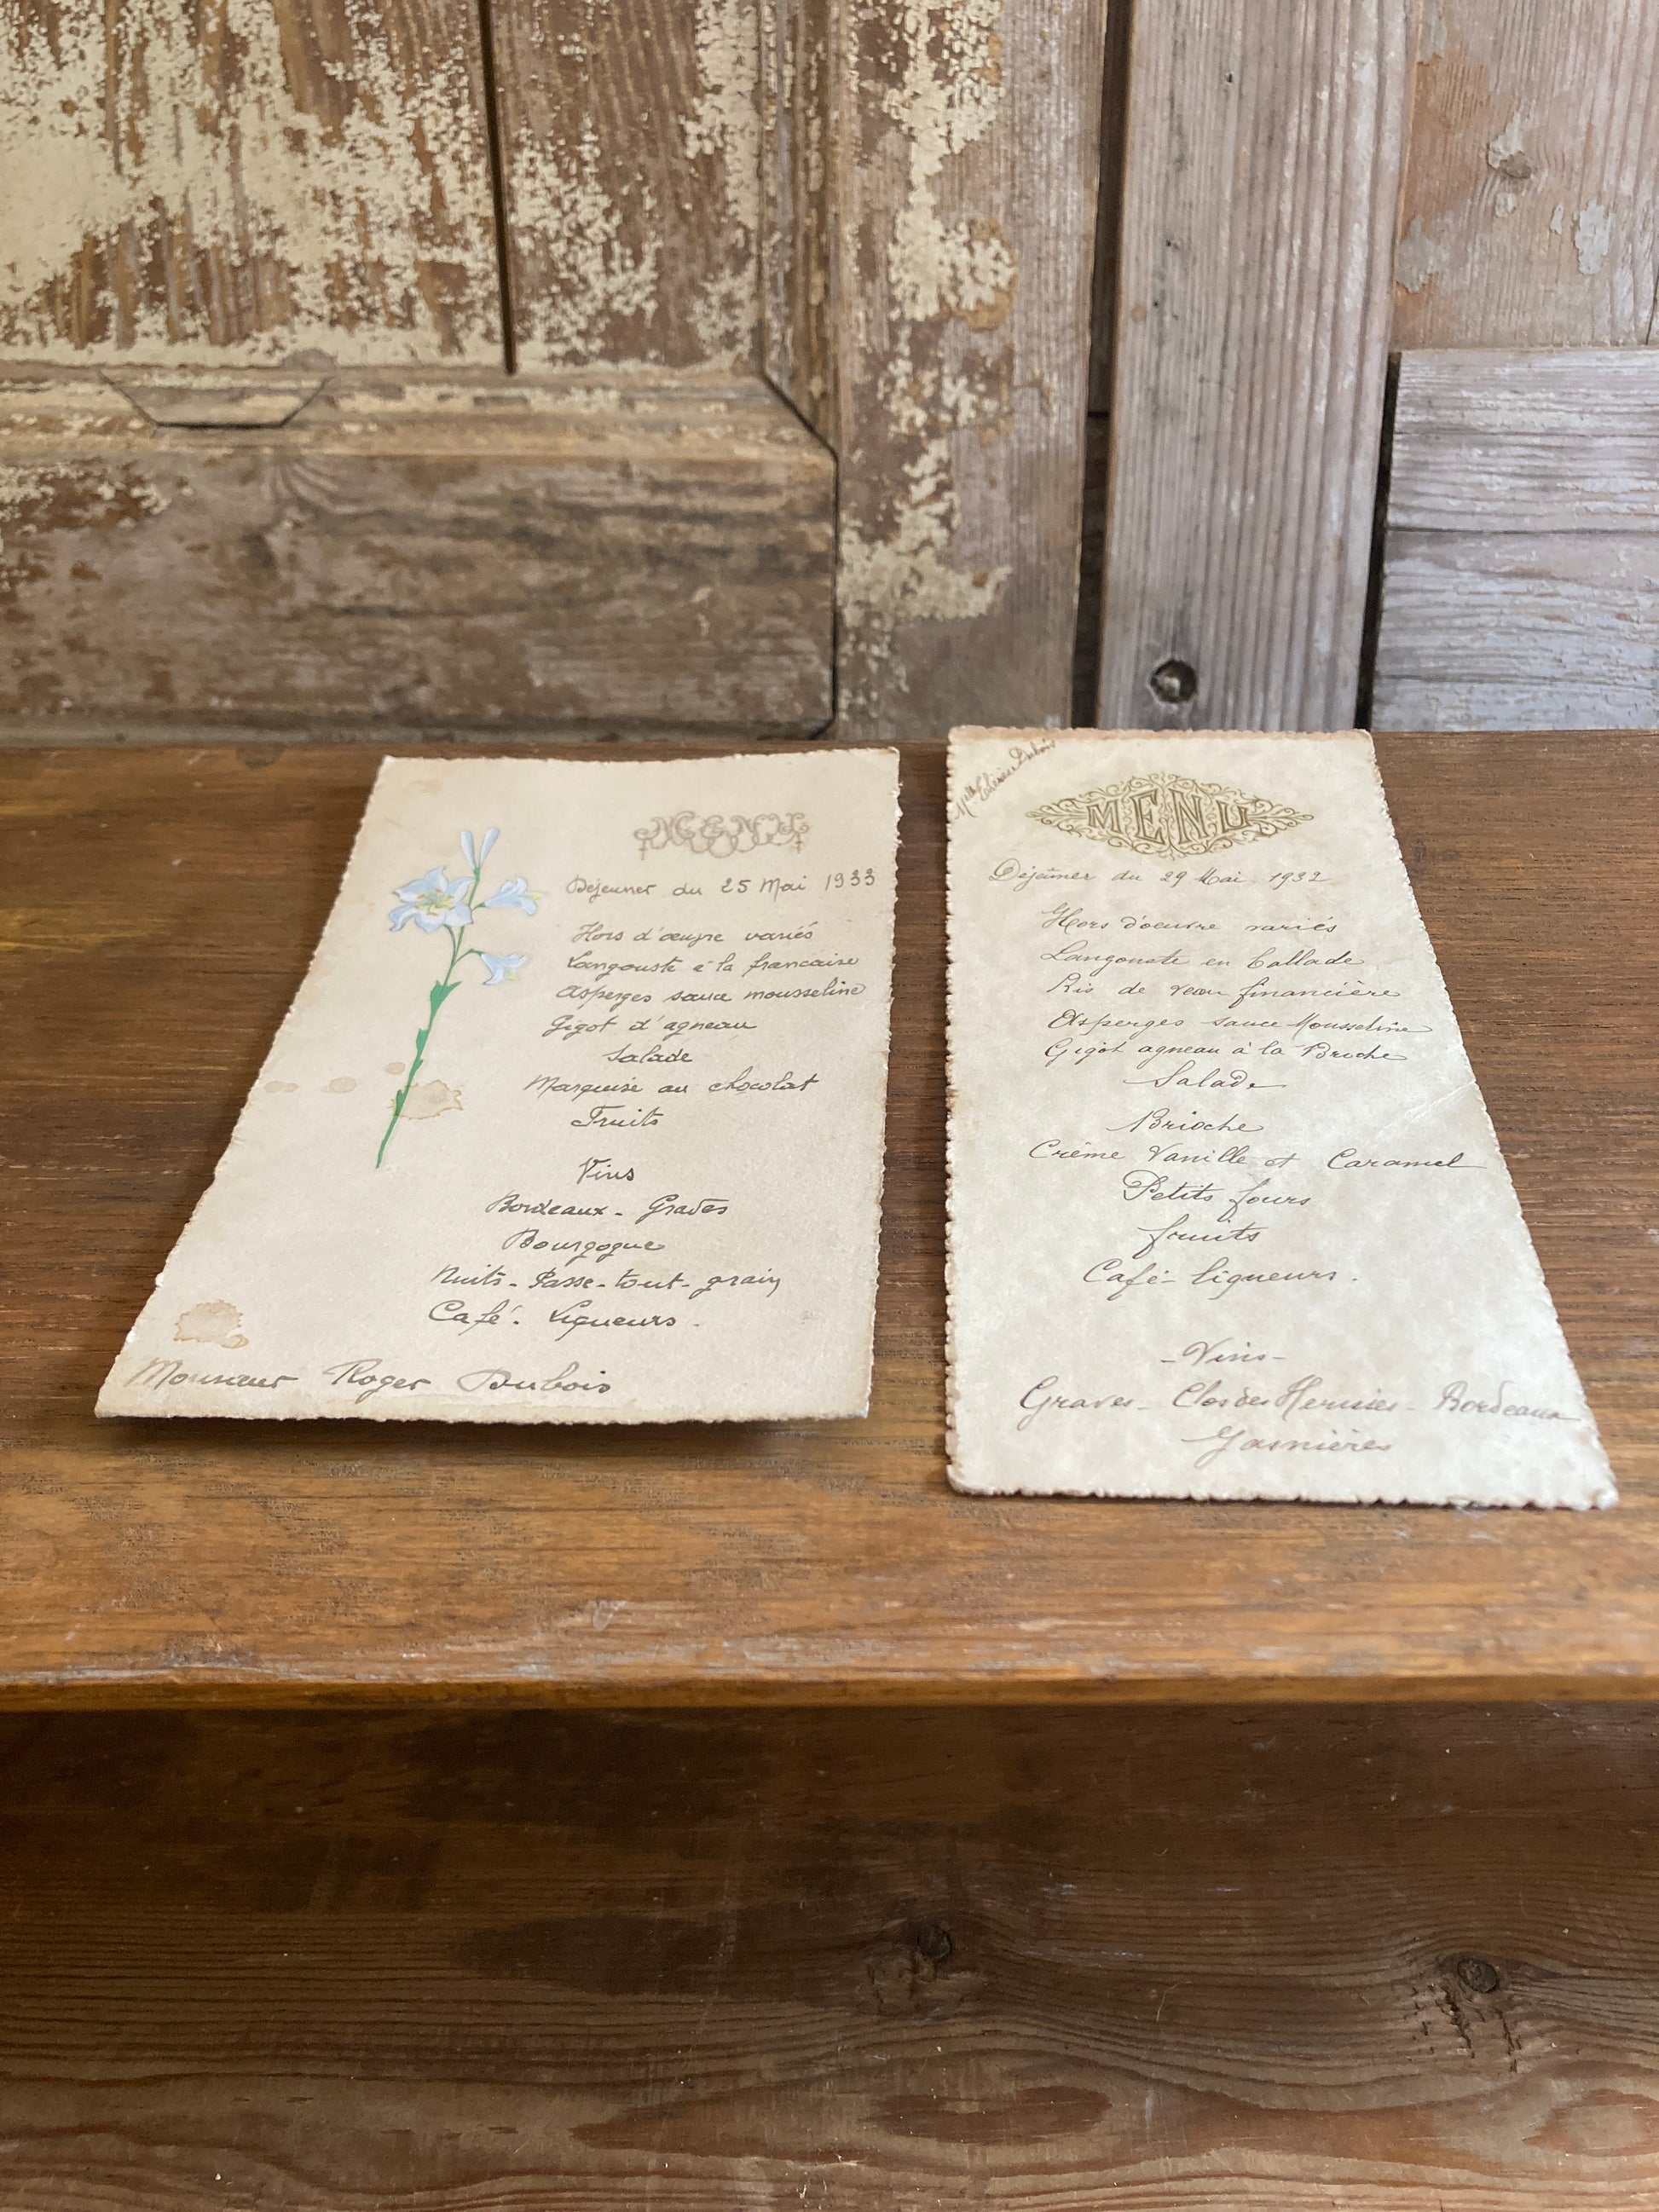 MENU
Déjeuner du 25 Mai 1933
Hors d'œuvre variés
Langouste à la francaise
Asperges sauce mousseline
Gigot d'agneau
Salade
Marquise au chocolat
Fruits
Vins
Bordeaux - Graves
Bourgogne
Nuits - Passe-tout-grain
Café. Liqueurs.
Monsieur Roger Dubois
Mlle Dubois
MENU
Déjeûner du 29 Mai 1932
Hors d'oeuvre variés
Langouste en Ballade
Ris de veau financière
Asperges sauce Mousseline
Gigot agneau à la Broche
Salade
Brioche
Crème Vanille et Caramel
Petits fours
fruits
Café - liqueurs.
- Vins -
Graves - Clos des - Bordeaux